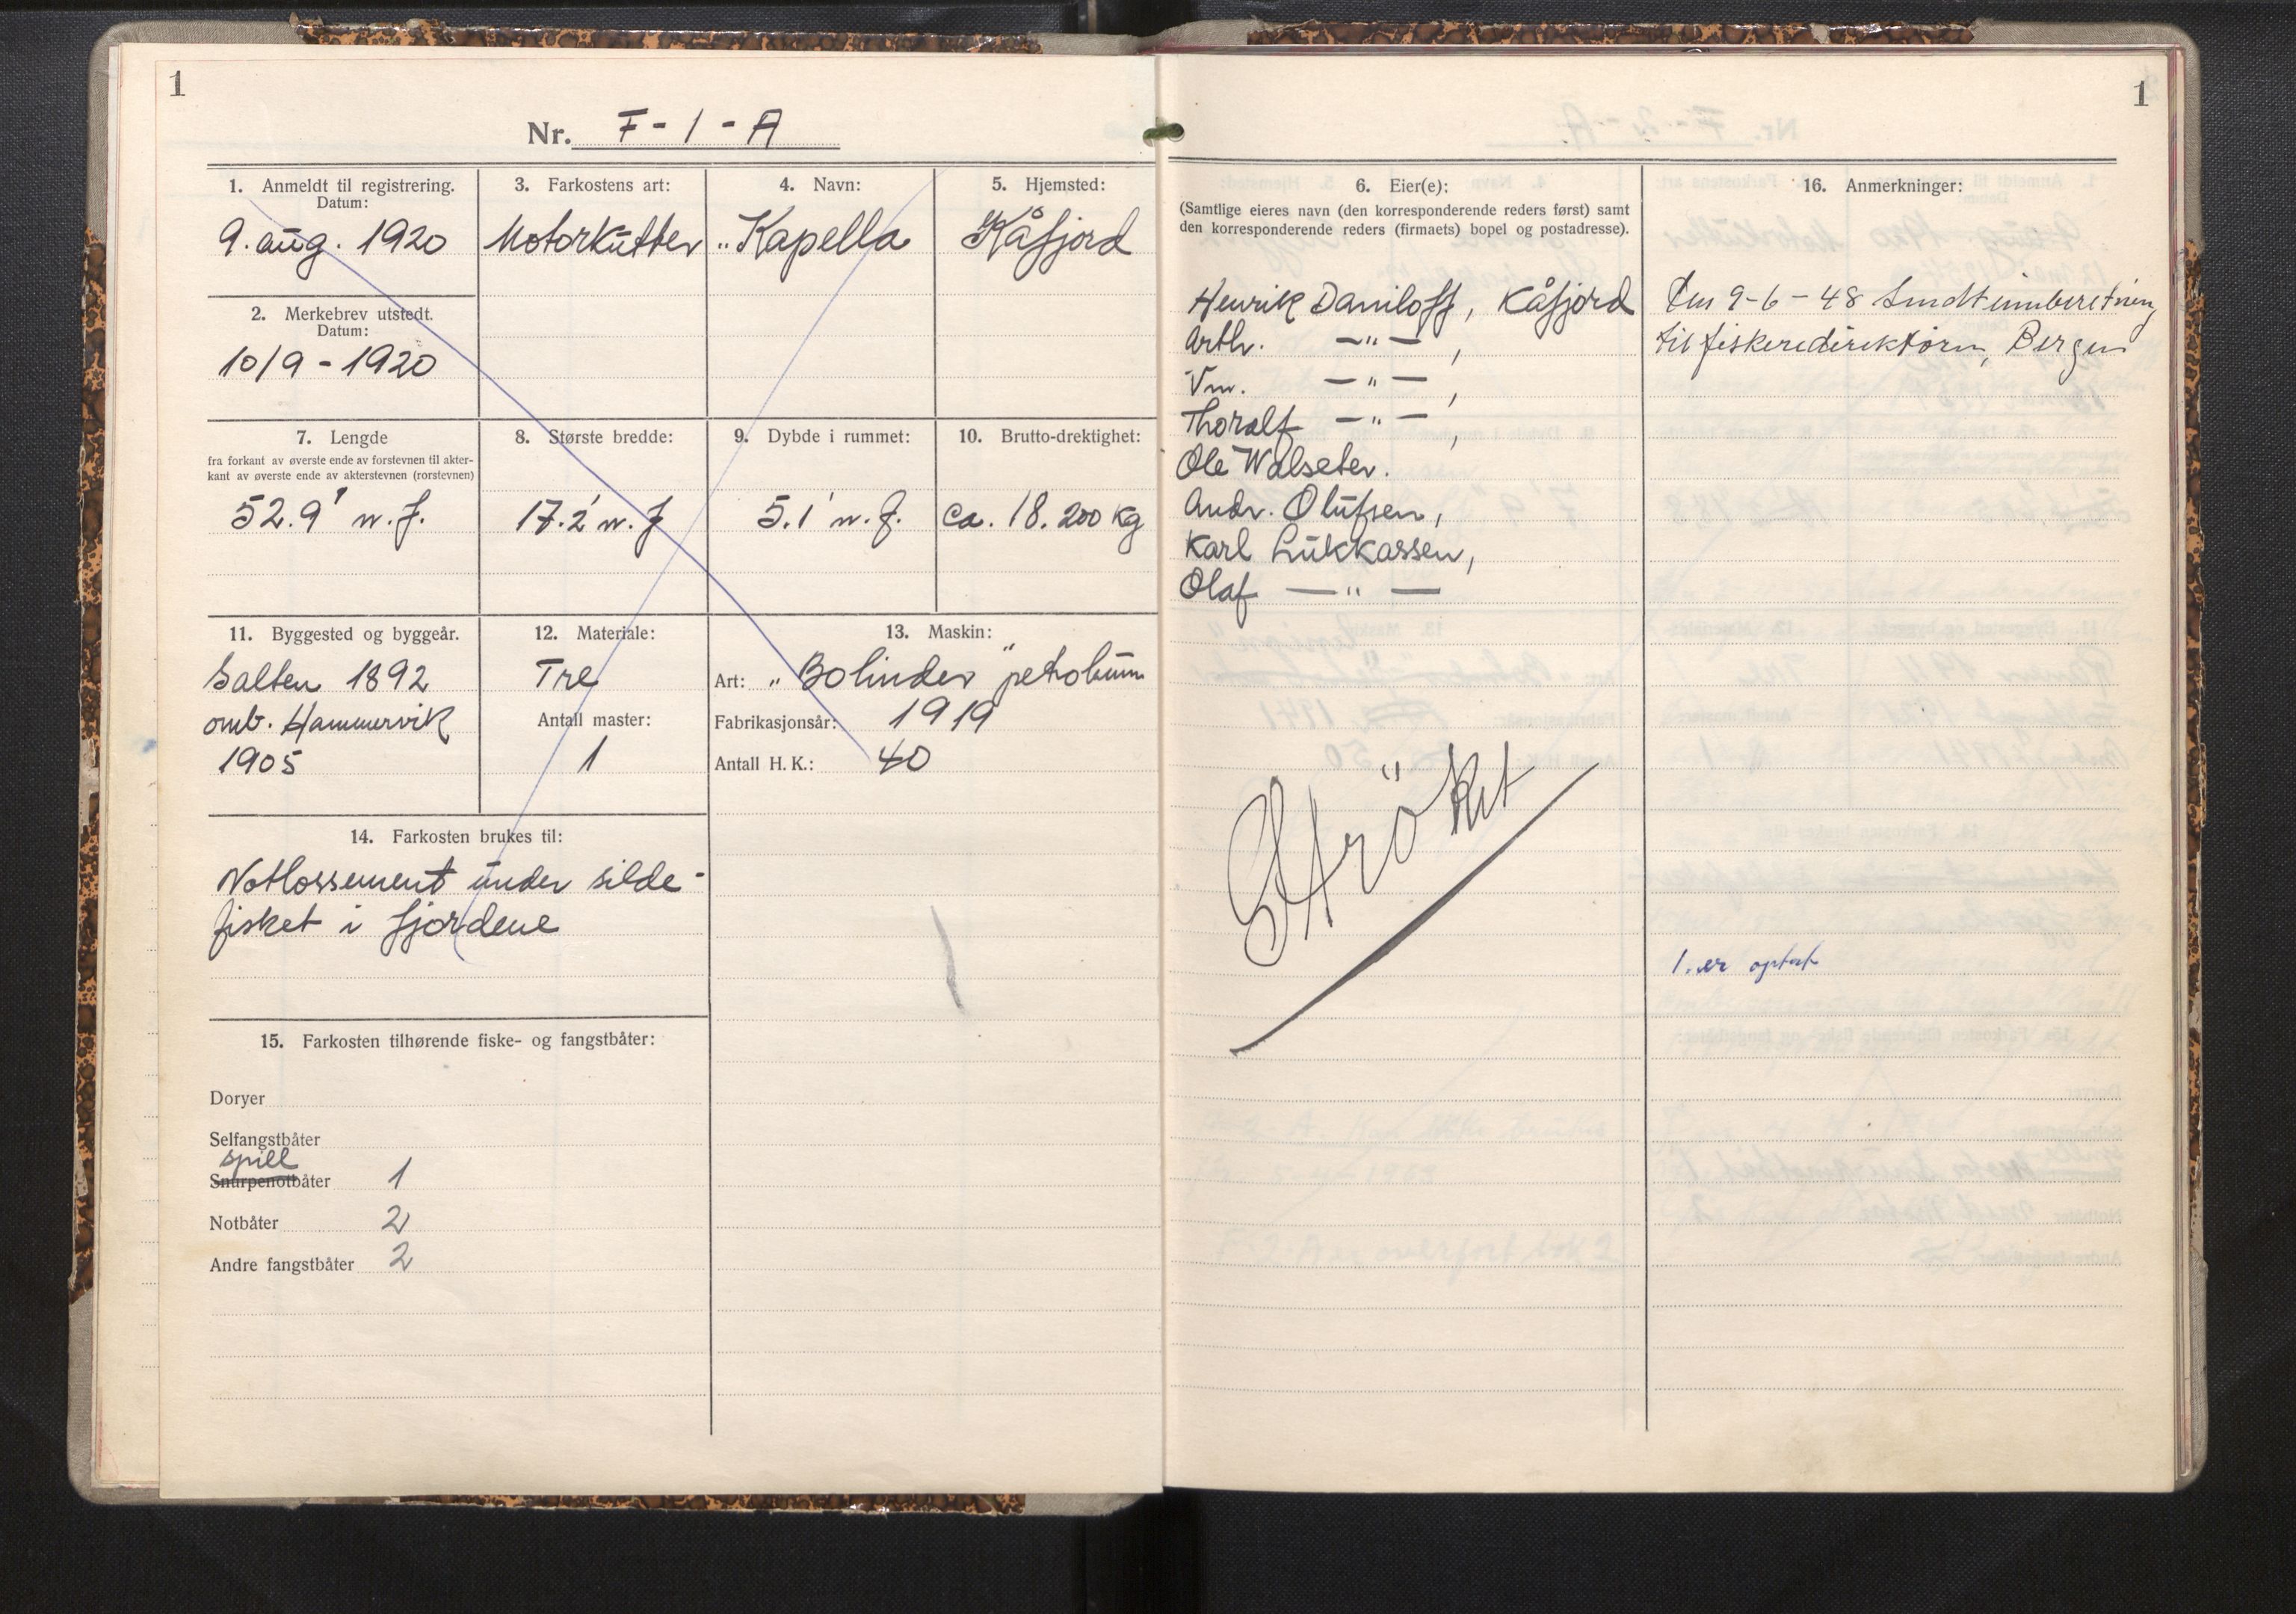 1
Nr. F-1-A
1. Anmeldt til registrering.
Datum:
9. aug. 1920
3. Farkostens art:
Motorkutter
4. Navn:
„Kapella
5. Hjemsted:
Kåfjord
2. Merkebrev utstedt.
Datum:
10/9 - 1920
7. Lengde
fra forkant av øverste ende av forstevnen til akter-
kant av øverste ende av akterstevnen (rorstevnen)
52.9' n.f.
8. Største bredde:
17.2' n.f
9. Dybde i rummet:
5.1' n.f.
10. Brutto-drektighet:
ca. 18.200 kg
11. Byggested og byggeår.
Salten 1892
omb. Hammervik
1905
12. Materiale:
Tre
Antall master:
1
13. Maskin:
Art: „Bolinder" petroleum
Fabrikasjonsår: 1919
Antall H. K.: 40
14. Farkosten brukes til:
Notlossement under silde-
fisket i fjordene
15. Farkosten tilhørende fiske- og fangstbåter:
Doryer
Selfangstbåter
spill
Snurpenotbåter 1
Notbåter 2
Andre fangstbåter 2
1
6. Eier(e):
(Samtlige eieres navn (den korresponderende reders først) samt
den korresponderende reders (firmaets) bopel og postadresse).
Henrik Daniloff, Kåfjord
Arth. —"— ,
Vm. —"— ,
Thoralf —"— ,
Ole Walseter.
Andr. Olufsen,
Karl Lukkassen,
Olaf —"—
Strøket
16. Anmerkninger:
Den 9-6-48 Sendt innberetning
til fiskeridirektøren, Bergen
1. er optatt